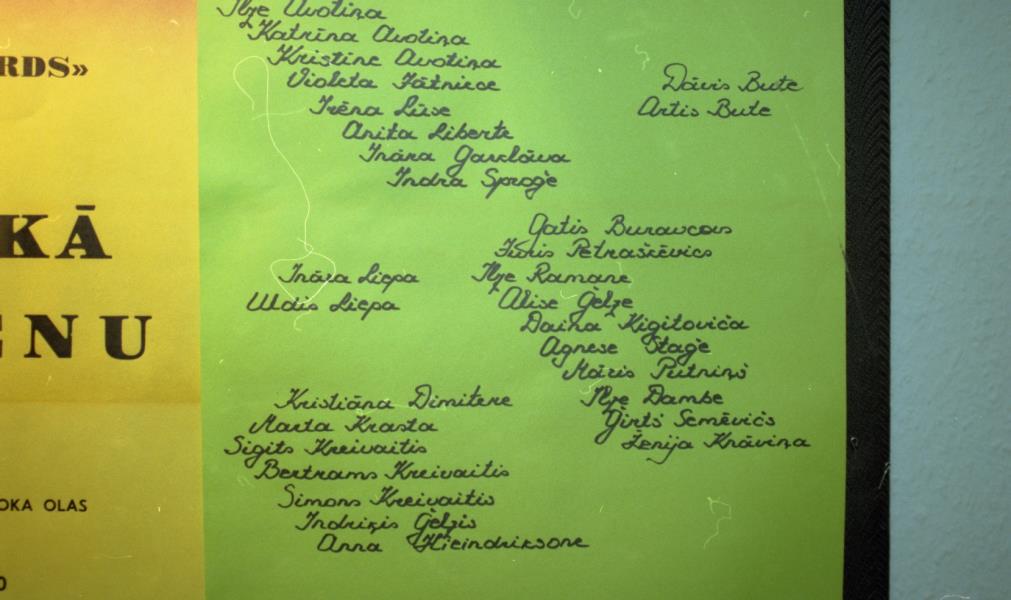 RDS»
KĀ
ENU
OKA OLAS
0
Ilze Avotiņa
Katrīna Avotiņa
Kristīne Avotiņa
Violeta Jātniece
Irēna Lūse
Anita Liberte
Ināra Gavrilova
Indra Sproģe
Dāvis Bute
Artis Bute
Gatis Buravcovs
Juris Petraškēvics
Ināra Liepa
Uldis Liepa
Ilze Ramane
Alise Ģelze
Daina Kigitoviča
Agnese Staģe
Māris Putniņš
Kristiāna Dimitere
Marta Krasta
Sigits Kreivaitis
Bertrams Kreivaitis
Simons Kreivaitis
Indriķis Ģelzis
Anna Heindrihsone
Ilze Dambe
Ģirts Semēvičs
Ženija Krāviņa